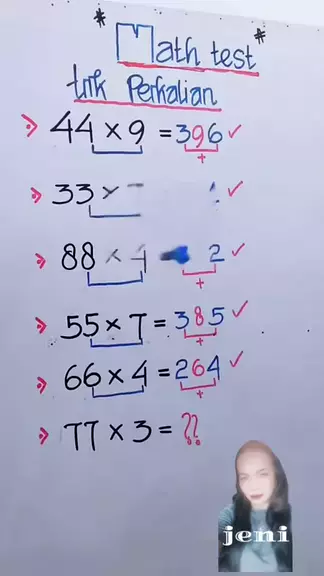 * Math test *
trik Perkalian
» 44 × 9 = 396 ✓
+
» 33 × ✓
» 88 × 4 2 ✓
+
» 55 × 7 = 385 ✓
+
» 66 × 4 = 264 ✓
+
» 77 × 3 = ??
jeni